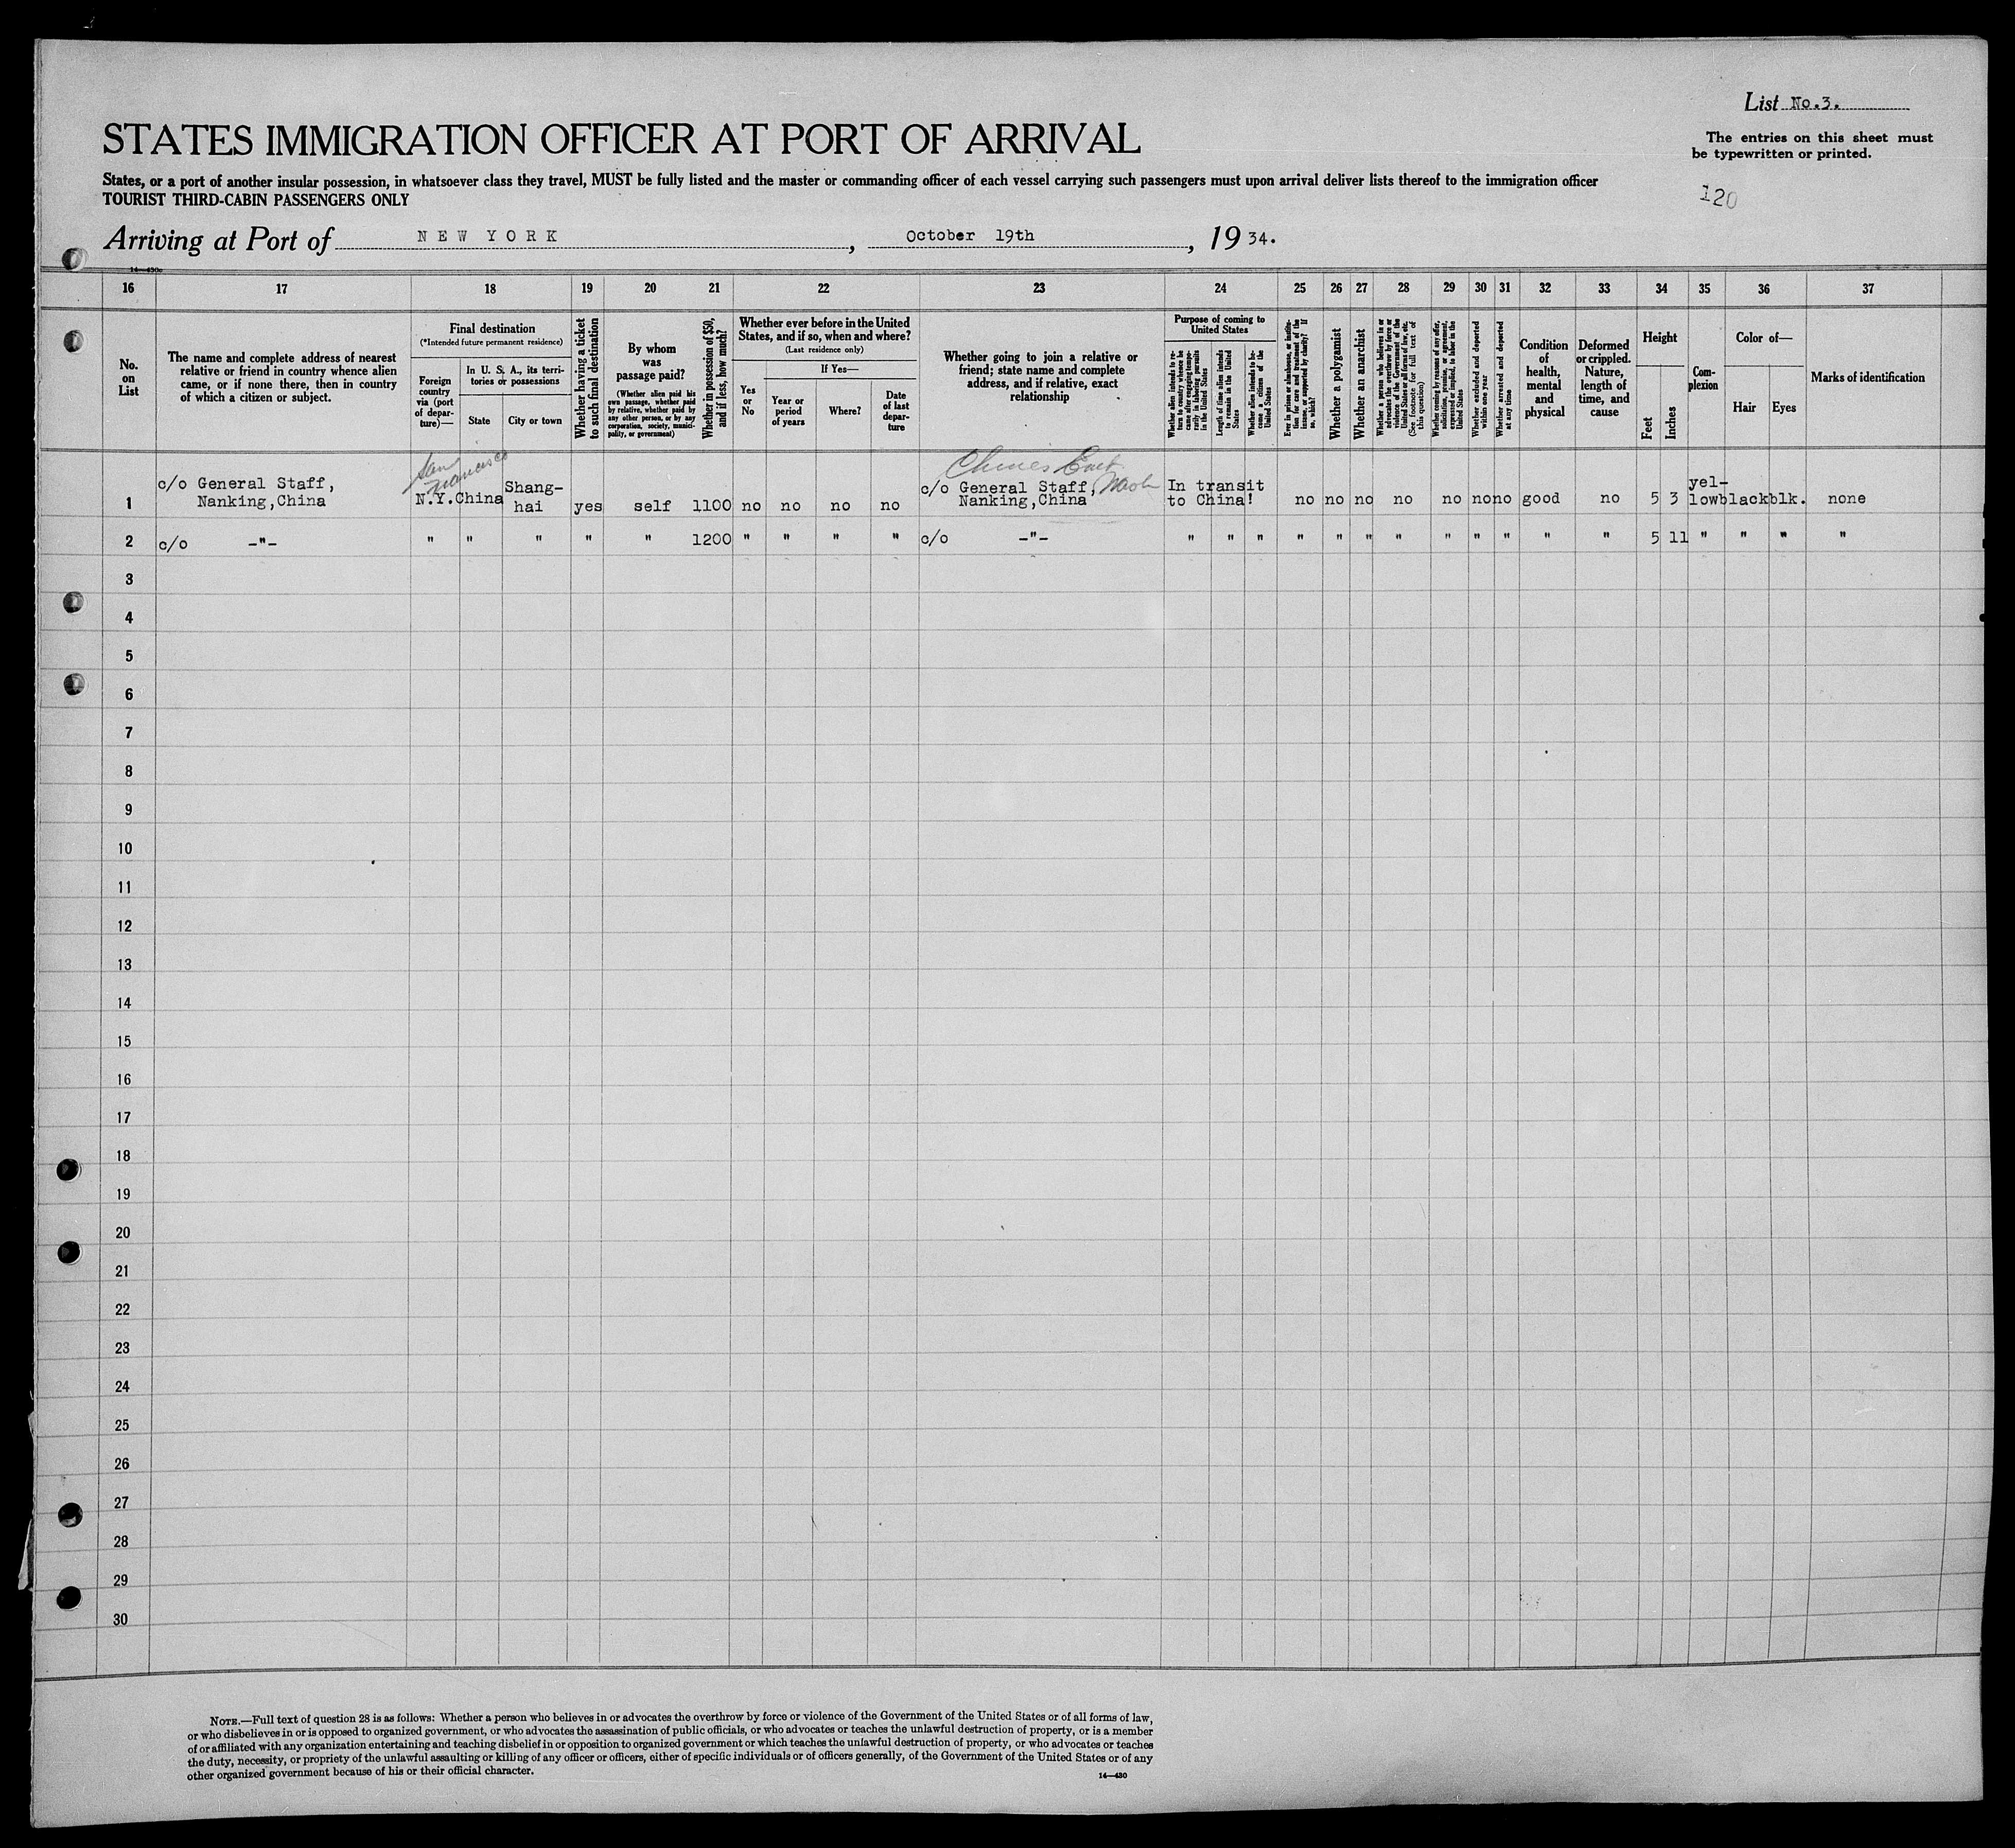 List No.3.
STATES IMMIGRATION OFFICER AT PORT OF ARRIVAL
The entries on this sheet must
be typewritten or printed.
States, or a port of another insular possession, in whatsoever class they travel, MUST be fully listed and the master or commanding officer of each vessel carrying such passengers must upon arrival deliver lists thereof to the immigration officer
TOURIST THIRD-CABIN PASSENGERS ONLY
120
Arriving at Port of NEW YORK, October 19th, 1934.
14—430c
16 17 18 19 20 21 22 23 24 25 26 27 28 29 30 31 32 33 34 35 36 37
No.
on
List
The name and complete address of nearest
relative or friend in country whence alien
came, or if none there, then in country
of which a citizen or subject.
Final destination
(*Intended future permanent residence)
Foreign
country
via (port
of depar-
ture)—
In U. S. A., its terri-
tories or possessions
State
City or town
Whether having a ticket
to such final destination
By whom
was
passage paid?
(Whether alien paid his
own passage, whether paid
by relative, whether paid by
any other person, or by any
corporation, society, munici-
pality, or government)
Whether in possession of $50,
and if less, how much?
Whether ever before in the United
States, and if so, when and where?
(Last residence only)
Yes
or
No
If Yes—
Year or
period
of years
Where?
Date
of last
depar-
ture
Whether going to join a relative or
friend; state name and complete
address, and if relative, exact
relationship
Purpose of coming to
United States
Whether alien intends to re-
turn to country whence he
came after engaging tempo-
rarily in laboring pursuits
in the United States
Length of time alien intends
to remain in the United
States
Whether alien intends to be-
come a citizen of the
United States
Ever in prison or almshouse, or institu-
tion for care and treatment of the
insane, or supported by charity? If
so, which?
Whether a polygamist
Whether an anarchist
Whether a person who believes in or
advocates the overthrow by force or
violence of the Government of the
United States or all forms of law, etc.
(See footnote for full text of
this question)
Whether coming by reasons of any offer,
solicitation, promise, or agreement,
expressed or implied, to labor in the
United States
Whether excluded and deported
within one year
Whether arrested and deported
at any time
Condition
of
health,
mental
and
physical
Deformed
or crippled.
Nature,
length of
time, and
cause
Height
Feet
Inches
Com-
plexion
Color of—
Hair
Eyes
Marks of identification
San
Francisco
Chines
1 c/o General Staff,
Nanking,China
N.Y. China Shang-
hai
yes self 1100 no no no no
c/o General Staff,
Nanking,China
In transit
to China!
no no no no no no no good no 5 3 yel-
low black blk. none
2 c/o -"- " " " " " 1200 " " " " c/o -"- " " " " " " " " " " " " 5 11 " " " "
3
4
5
6
7
8
9
10
11
12
13
14
15
16
17
18
19
20
21
22
23
24
25
26
27
28
29
30
NOTE.—Full text of question 28 is as follows: Whether a person who believes in or advocates the overthrow by force or violence of the Government of the United States or of all forms of law,
or who disbelieves in or is opposed to organized government, or who advocates the assassination of public officials, or who advocates or teaches the unlawful destruction of property, or is a member
of or affiliated with any organization entertaining and teaching disbelief in or opposition to organized government or which teaches the unlawful destruction of property, or who advocates or teaches
the duty, necessity, or propriety of the unlawful assaulting or killing of any officer or officers, either of specific individuals or of officers generally, of the Government of the United States or of any
other organized government because of his or their official character.
14—430